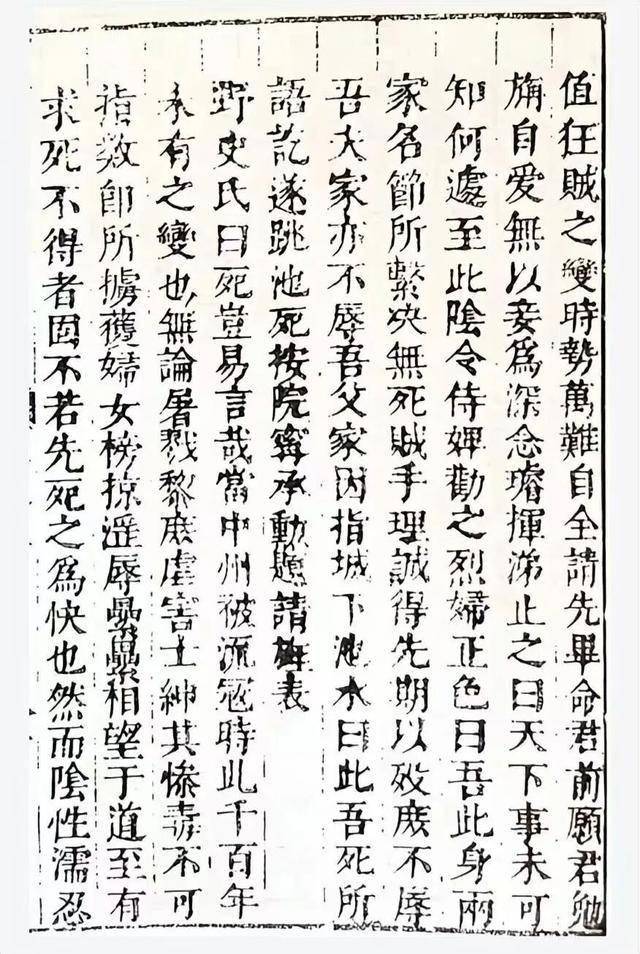 值狂賊之變時勢萬難自全請先畢命君前願君勉
旃自愛無以妾爲深念璿揮涕止之曰天下事未可
知何遽至此陰令侍婢勸之烈婦正色曰吾此身兩
家名節所繫決無死賊手理誠得先期以歿庶不辱
吾夫家亦不辱吾父家因指城下池水曰此吾死所
語訖遂跳池死按院甯承勳題請旌表
野史氏曰死豈易言哉當中州被流寇時此千百年
未有之變也無論屠戮黎庶虐害士紳其慘毒不可
指數即所擄獲婦女榜掠淫辱纍纍相望于道至有
求死不得者固不若先死之爲快也然而陰性濡忍